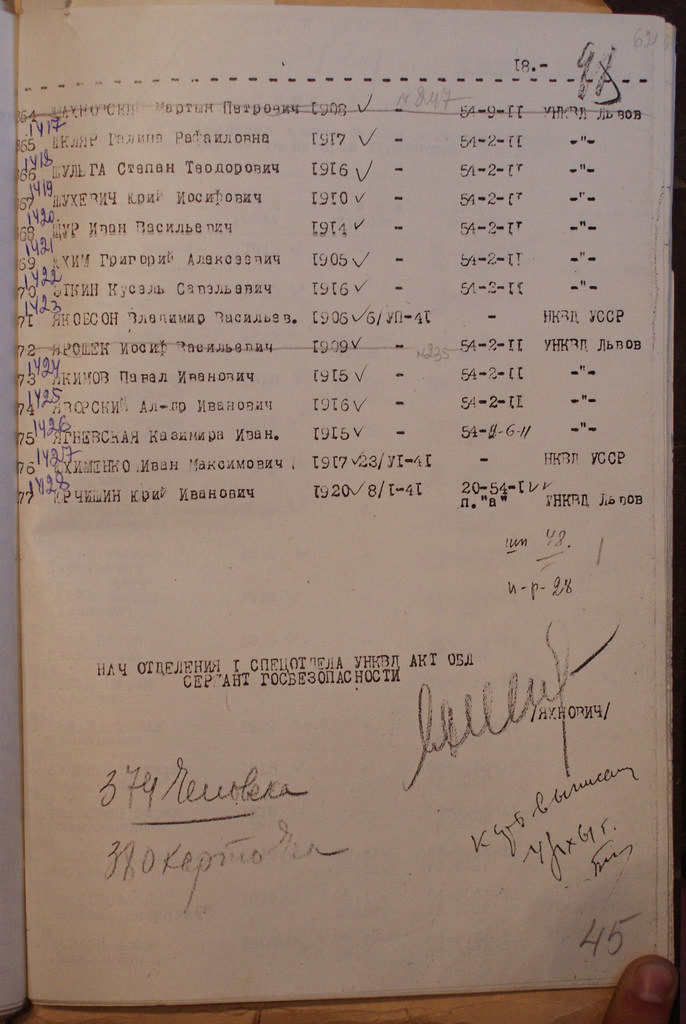 62
18.-
98
364 ШАХНОВСКИЙ Мартын Петрович 1908 ✓ - №247 54-9-II УНКВД Львов
1417
365 ШКЛЯР Галина Рафаиловна 1917 ✓ - 54-2-II -"-
1418
366 ШУЛЬГА Степан Теодорович 1916 ✓ - 54-2-II -"-
1419
367 ШУХЕВИЧ Юрий Иосифович 1910 ✓ - 54-2-II -"-
1420
368 ЩУР Иван Васильевич 1914 ✓ - 54-2-II -"-
1421
369 ЮХИМ Григорий Алексеевич 1905 ✓ - 54-2-II -"-
1422
70 ЮТКИН Кусель Савельевич 1916 ✓ - 54-2-II -"-
1423
71 ЯКОБСОН Владимир Васильев. 1906 ✓ 6/УП-41 - НКВД УССР
72 ЯРОШЕК Иосиф Васильевич 1909 ✓ - №235 54-2-II УНКВД Львов
1424
73 ЯКИМОВ Павел Иванович 1915 ✓ - 54-2-II -"-
1425
74 ЯВОРСКИЙ Ал-др Иванович 1916 ✓ - 54-2-II -"-
1426
75 ЯГНЕВСКАЯ Казимира Иван. 1915 ✓ - 54-2-6-11 -"-
1427
76 ЯХИМЕНКО Иван Максимович 1917 ✓ 23/УI-41 - НКВД УССР
1428
77 ЯРЧИШИН Юрий Иванович 1920 ✓ 8/I-41 20-54-I ✓✓
п."а" УНКВД Львов
шп 48.
и-р-28
НАЧ ОТДЕЛЕНИЯ I СПЕЦОТДЕЛА УНКВД АКТ ОБЛ
СЕРЖАНТ ГОСБЕЗОПАСНОСТИ
/ЯХНОВИЧ/
374 человека
380 карточка
45